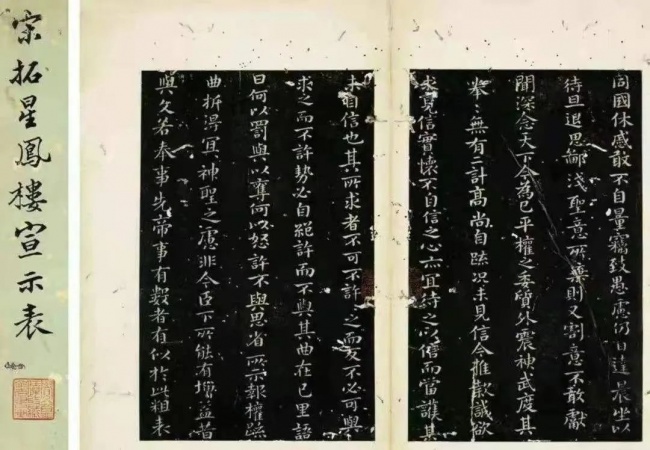 宋拓星鳳樓宣示表
同國休慼敢不自量竊致愚慮仍日達晨坐以
待旦退思鄙淺聖意所棄則又割意不敢獻
聞深念天下今為已平權之委質外震神武度其
拳〻無有二計高尚自疏況未見信今推款誠欲
求見信實懷不自信之心亦宜待之以信而當護其
未自信也其所求者不可不許〻之而反不必可與
求之而不許勢必自絕許而不與其曲在已里語
曰何以罰與以奪何以怒許不與思省所示報權疏
曲折得宜〻神聖之慮非今臣下所能有增益昔
與文若奉事先帝事有數者有似於此粗表